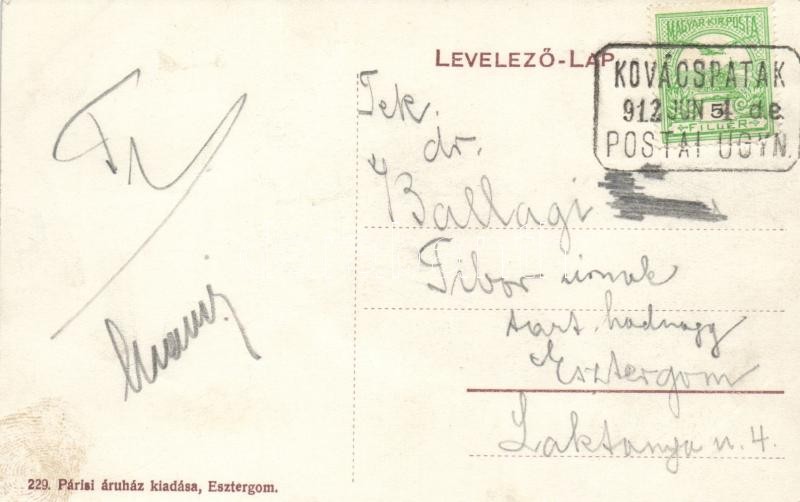 MAGYAR KIR. POSTA
LEVELEZŐ-LAP
FILLÉR
KOVÁCSPATAK
912 JUN 5 de
POSTAI ÜGYN.
Tek.
dr.
Ballagi
Tibor úrnak
tart. hadnagy
Esztergom
Laktanya u. 4.
229. Párisi áruház kiadása, Esztergom.